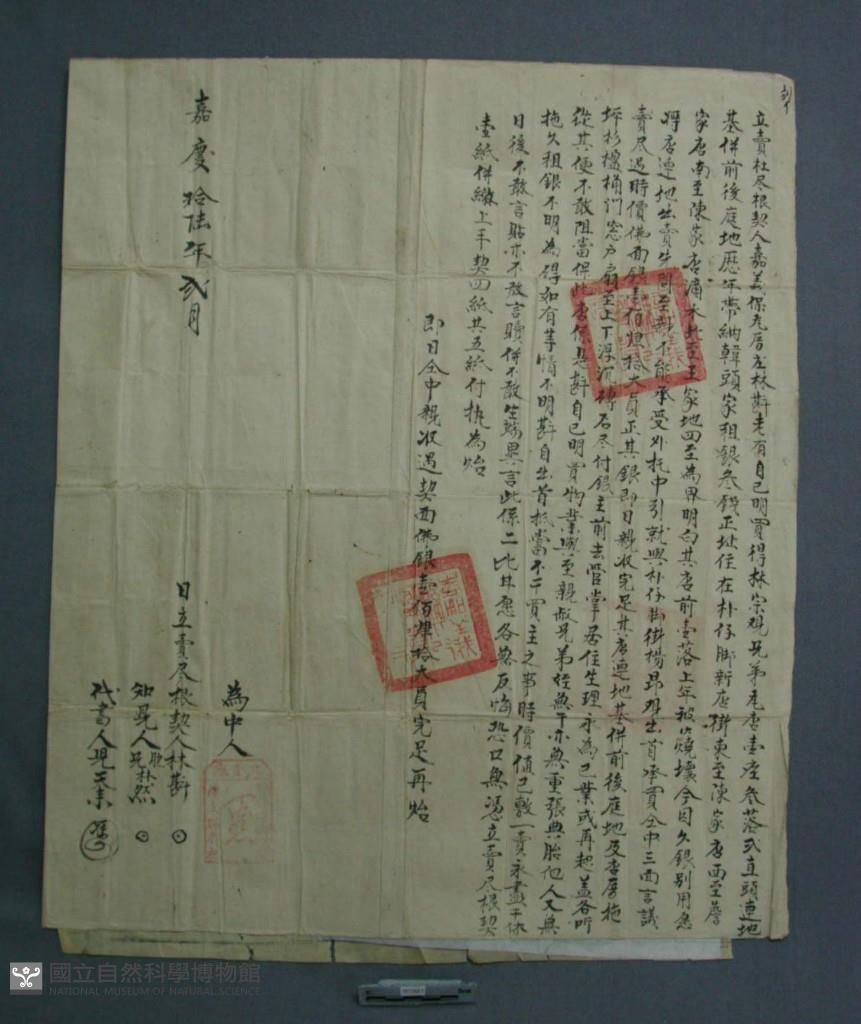 立賣杜尽根契人嘉義保瓦厝庄林斟老有自己明買得林宗觀兄弟瓦店壹座叁落弍直頭連地
基併前後庭地歷年帶納韓頭家租銀叁錢正址住在朴仔脚新店街東至陳家店西至詹
家店南至陳家店滴水北至王家地四至為界明白其店前壹落上年被火燒壞今因欠銀別用愿
將店連地出賣先問至親不能承受外托中引就與朴仔脚街楊昂观出首承買仝中三面言議
賣尽過時價佛面銀壹佰肆拾大員正其銀即日親收完足其店連地基併前後庭地及店厝拖
坪杉檁桷門窓户扇至上下浮沉磚石尽付銀主前去管掌居住生理永為己業或再起盖各听
從其便不敢阻當保此店係是斟自己明買物業與至親叔兄弟侄無干亦無重張典胎他人又無
拖欠租銀不明為碍如有等情不明斟自出首抵當不干買主之事時價值已敷一賣永盡千休
日後不敢言貼亦不敢言贖併不敢生端異言此係二比甘愿各無反悔恐口無憑立賣尽根契
壹紙併繳上手契四紙共五紙付执為炤
即日仝中親收過契面佛銀壹佰肆拾大員完足再炤
為中人
日立賣尽根契人林斟
知見人 兄林然
代書人
嘉慶拾陆年弍月
國立自然科學博物館
NATIONAL MUSEUM OF NATURAL SCIENCE